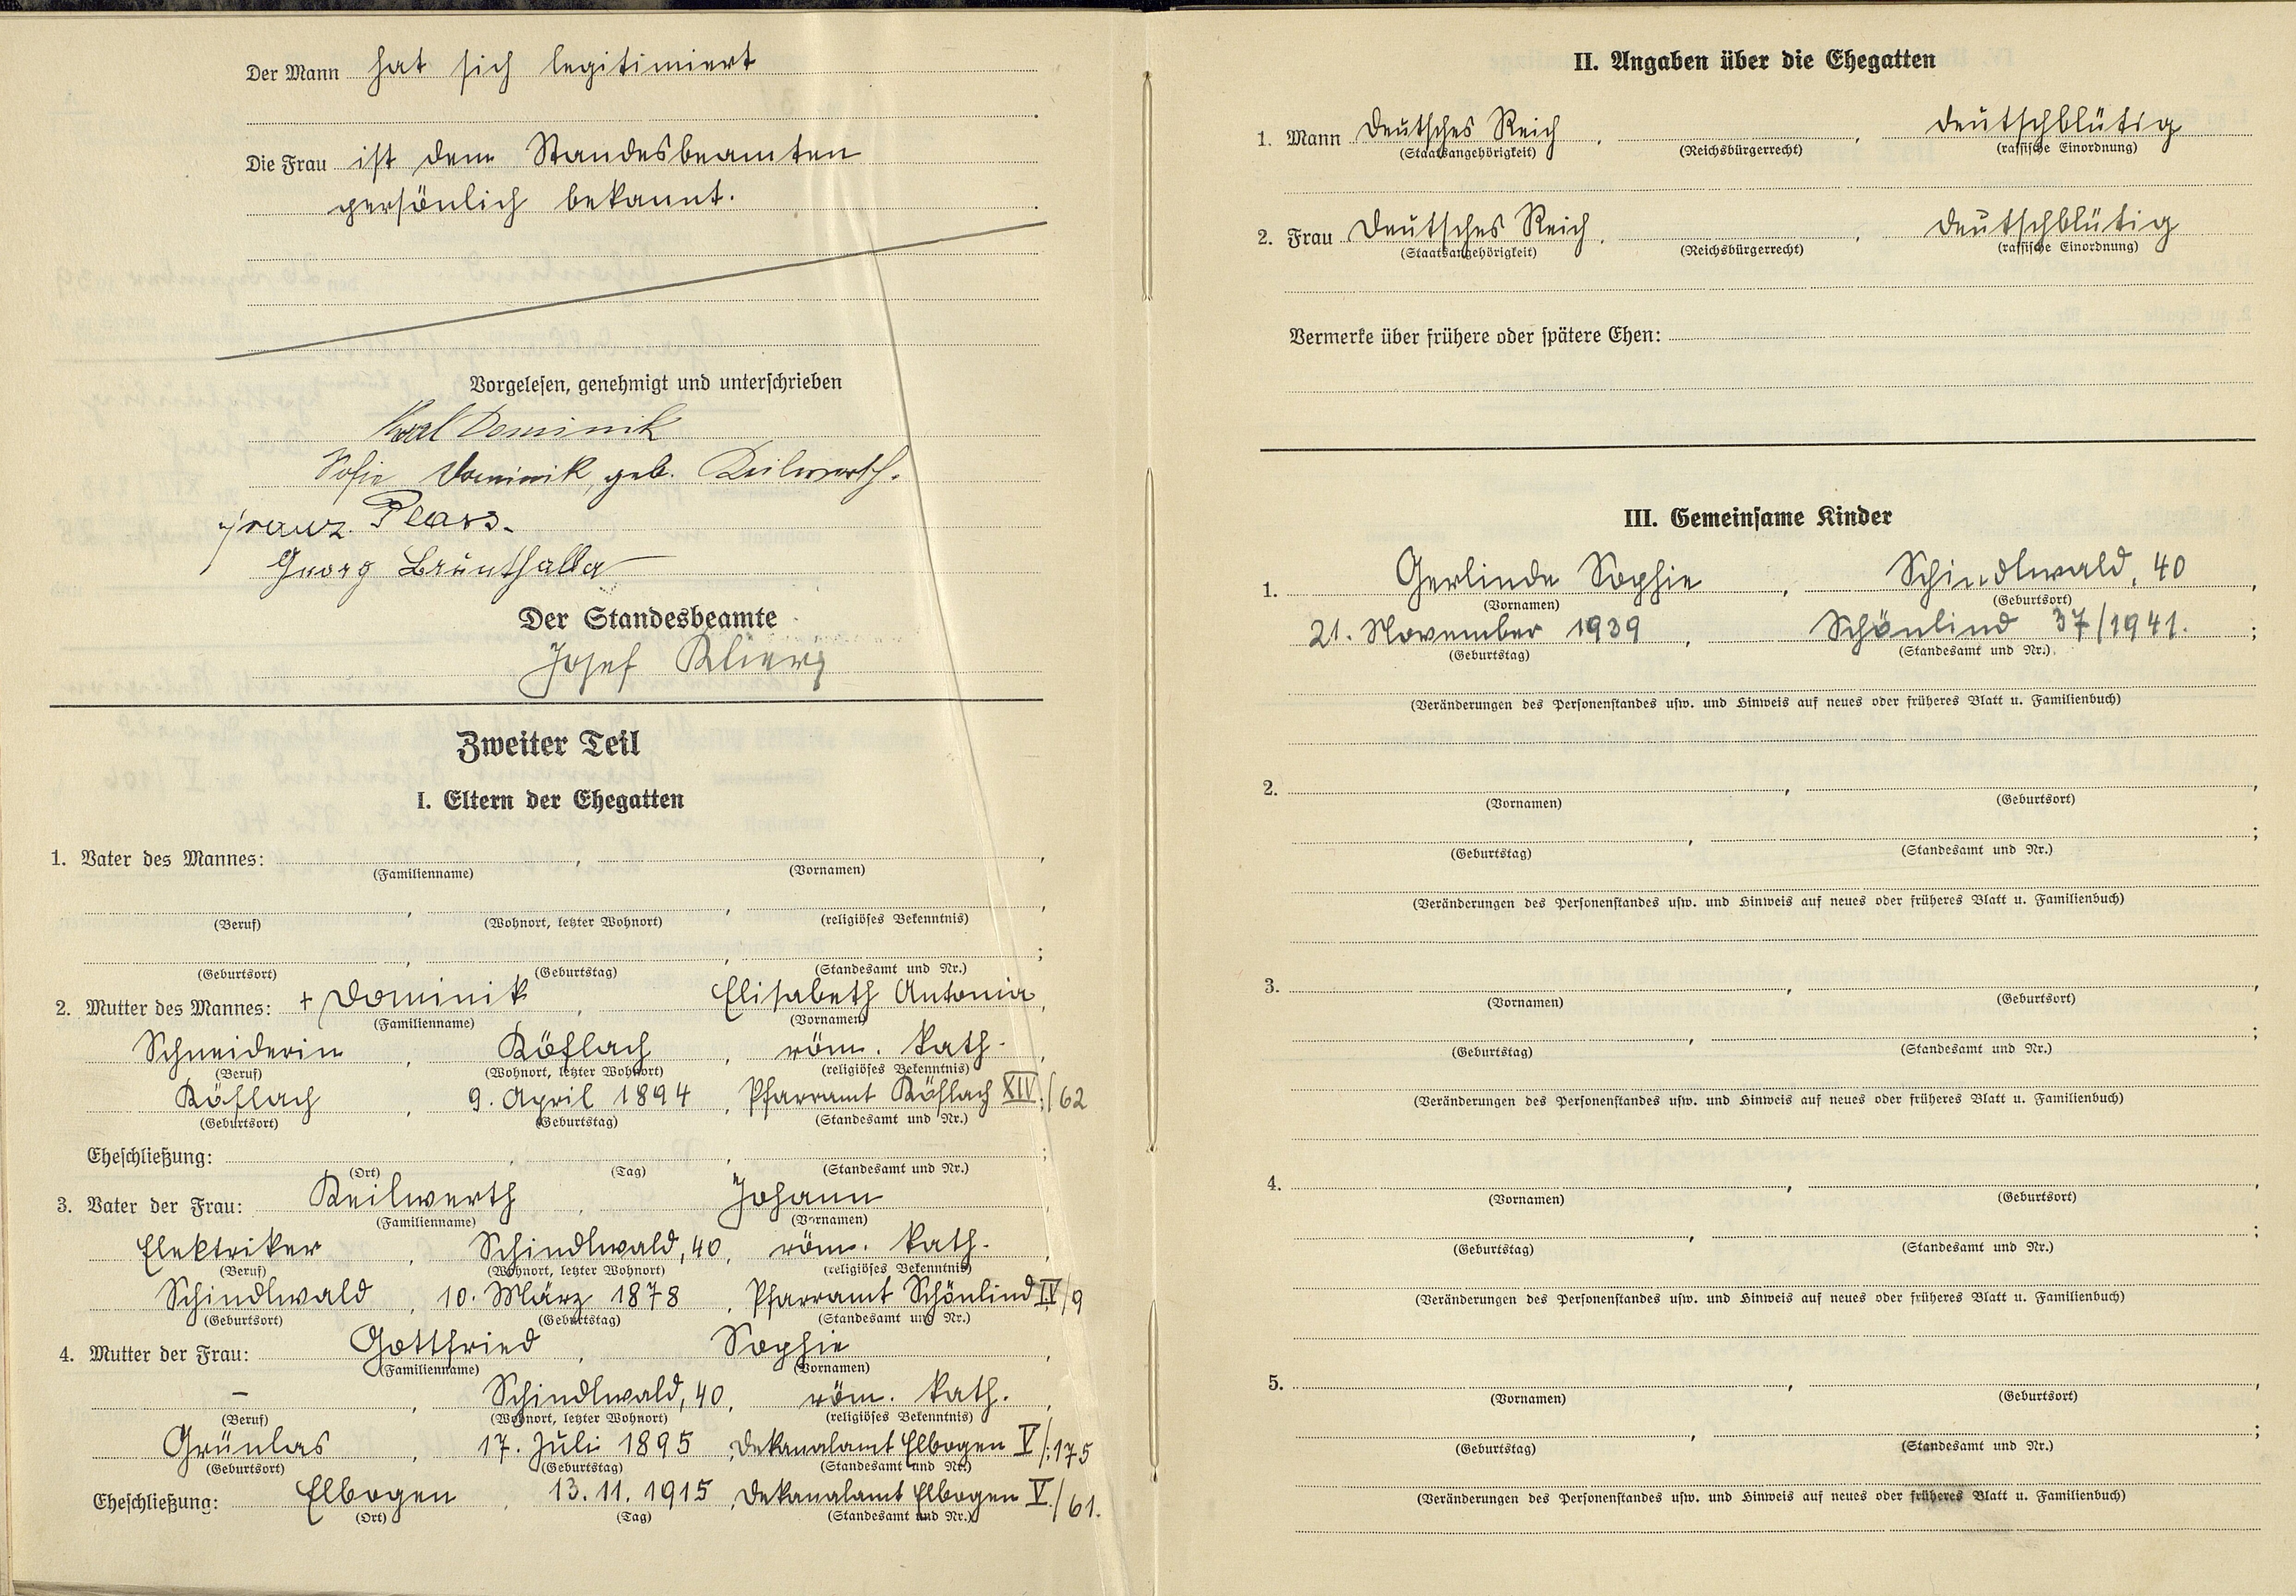 Der Mann hat sich legitimiert
.
Die Frau ist dem Standesbeamten
persönlich bekannt. .
Vorgelesen, genehmigt und unterschrieben
Karl Dominik
Sofie Dominik, geb. Keilwerth.
Franz
Georg
Der Standesbeamte
Josef
Zweiter Teil
I. Eltern der Ehegatten
1. Vater des Mannes: , ,
(Familienname) (Vornamen)
, , ,
(Beruf) (Wohnort, letzter Wohnort) (religiöses Bekenntnis)
, , ;
(Geburtsort) (Geburtstag) (Standesamt und Nr.)
2. Mutter des Mannes: + Dominik , Elisabeth Antonia ,
(Familienname) (Vornamen)
Schneiderin , Köflach , röm. kath. ,
(Beruf) (Wohnort, letzter Wohnort) (religiöses Bekenntnis)
Köflach , 9. April 1894 , Pfarramt Köflach XIV./62
(Geburtsort) (Geburtstag) (Standesamt und Nr.)
Eheschließung: , , ;
(Ort) (Tag) (Standesamt und Nr.)
3. Vater der Frau: Keilwerth , Johann ,
(Familienname) (Vornamen)
Elektriker , Schindlwald, 40 , röm. kath. ,
(Beruf) (Wohnort, letzter Wohnort) (religiöses Bekenntnis)
Schindlwald , 10. März 1878 , Pfarramt Schönlind IV/9
(Geburtsort) (Geburtstag) (Standesamt und Nr.)
4. Mutter der Frau: Gottfried , Sophie ,
(Familienname) (Vornamen)
– , Schindlwald, 40 , röm. kath. ,
(Beruf) (Wohnort, letzter Wohnort) (religiöses Bekenntnis)
Grünlas , 17. Juli 1895 , Dekanalamt Elbogen V/:175
(Geburtsort) (Geburtstag) (Standesamt und Nr.)
Eheschließung: Elbogen , 13.11.1915 , Dekanalamt Elbogen V./61.
(Ort) (Tag) (Standesamt und Nr.)
II. Angaben über die Ehegatten
1. Mann Deutsches Reich , , deutschblütig
(Staatsangehörigkeit) (Reichsbürgerrecht) (rassische Einordnung)
2. Frau Deutsches Reich , , deutschblütig
(Staatsangehörigkeit) (Reichsbürgerrecht) (rassische Einordnung)
Vermerke über frühere oder spätere Ehen:
III. Gemeinsame Kinder
1. Gerlinde Sophie , Schindlwald, 40 ,
(Vornamen) (Geburtsort)
21. November 1939 , Schönlind 37/1941. ;
(Geburtstag) (Standesamt und Nr.)
(Veränderungen des Personenstandes usw. und Hinweis auf neues oder früheres Blatt u. Familienbuch)
2. , ,
(Vornamen) (Geburtsort)
, ;
(Geburtstag) (Standesamt und Nr.)
(Veränderungen des Personenstandes usw. und Hinweis auf neues oder früheres Blatt u. Familienbuch)
3. , ,
(Vornamen) (Geburtsort)
, ;
(Geburtstag) (Standesamt und Nr.)
(Veränderungen des Personenstandes usw. und Hinweis auf neues oder früheres Blatt u. Familienbuch)
4. , ,
(Vornamen) (Geburtsort)
, ;
(Geburtstag) (Standesamt und Nr.)
(Veränderungen des Personenstandes usw. und Hinweis auf neues oder früheres Blatt u. Familienbuch)
5. , ,
(Vornamen) (Geburtsort)
, ;
(Geburtstag) (Standesamt und Nr.)
(Veränderungen des Personenstandes usw. und Hinweis auf neues oder früheres Blatt u. Familienbuch)